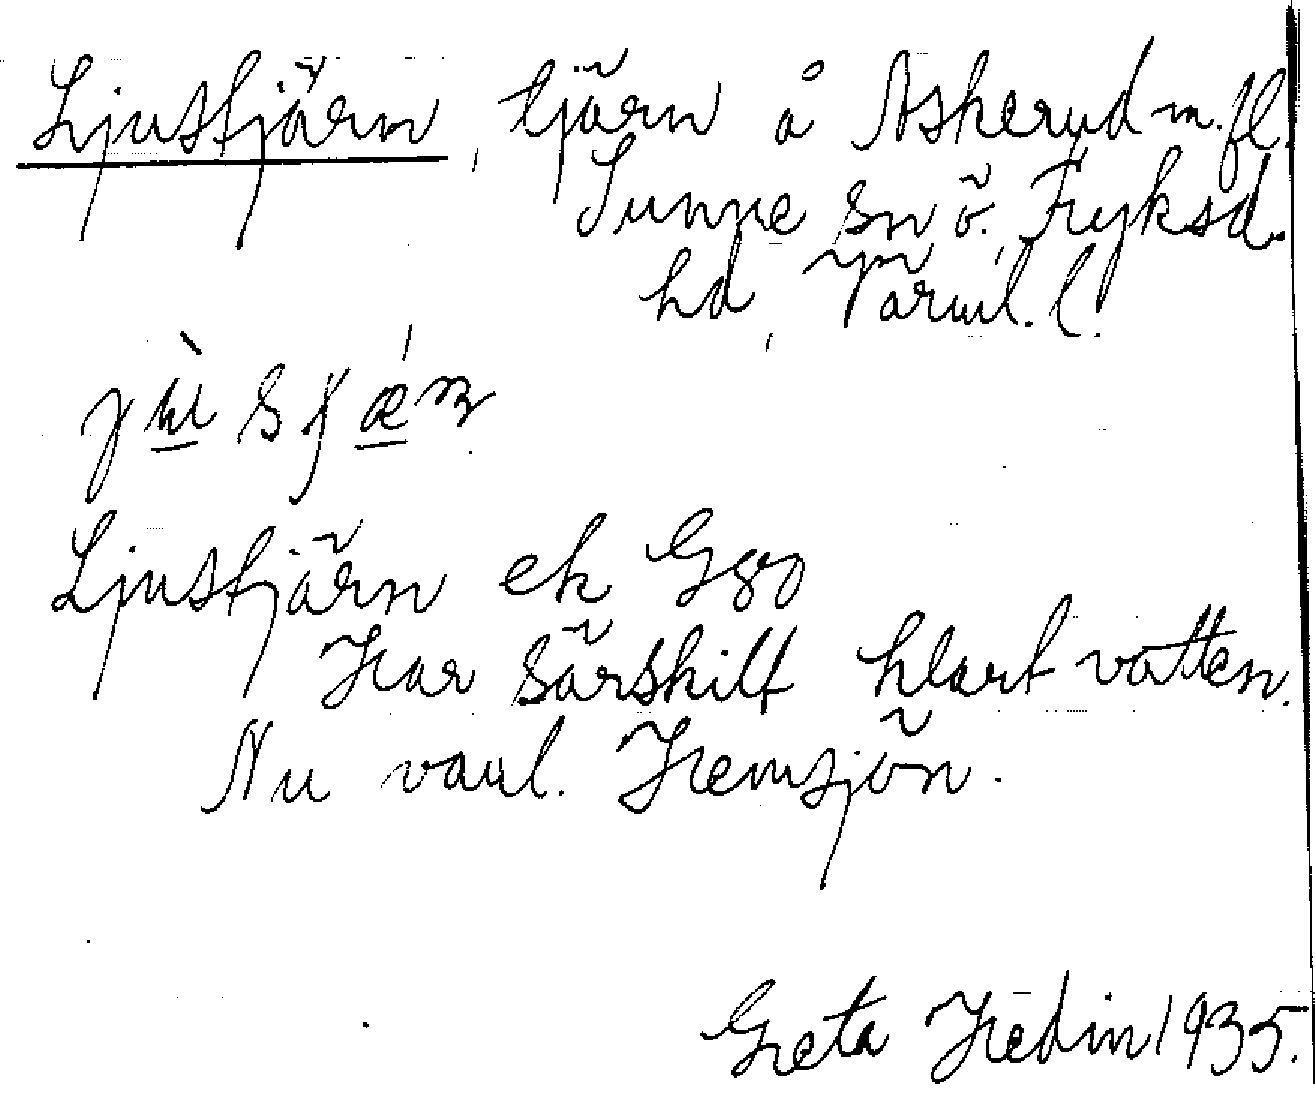 Ljustjärn, tjärn å Askerud m. fl.
Sunne sn ö. Fryksd.
hd, Värml. l.
Ljustjärn ek Ggo
Har särskilt klart vatten.
Nu vanl. Hemsjön.
Greta Hedin 1935.